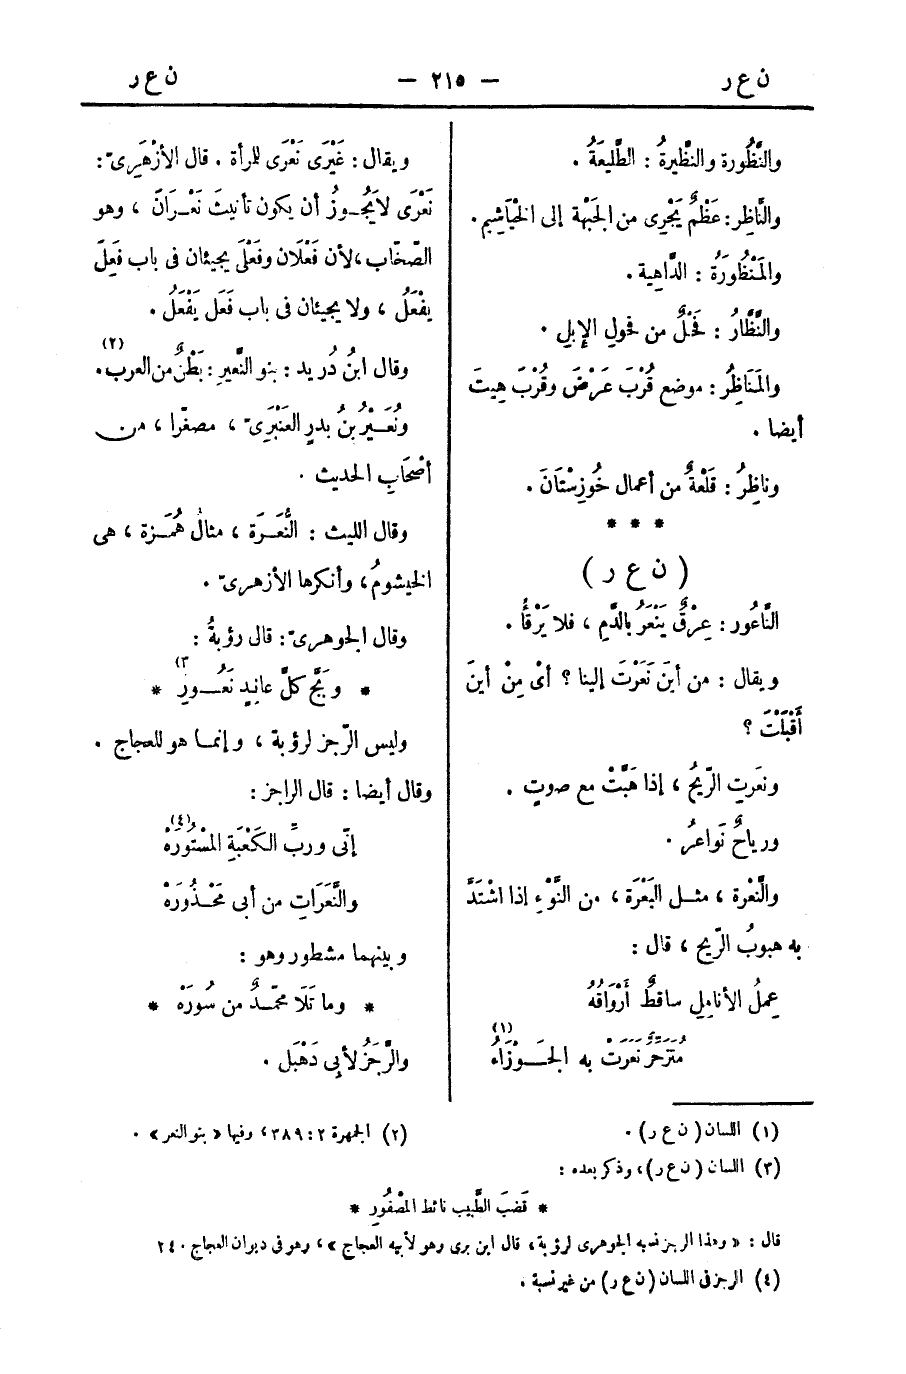 ن ع ر — ٢١٥ — ن ع ر
والنَّظُورة والنظِيرةُ : الطَّلِيعَةُ .
والنَّاظِر : عَظْمٌ يَجْرِى من الجَبْهة إلى الخَيَاشِيم .
والمَنْظُورَةُ : الدَّاهِية .
والنَّظَّارُ : فَحْلٌ من فحولِ الإبلِ .
والمَنَاظِرُ : موضع قُرْبَ عَرْضَ وقُرْبَ هِيتَ
أيضا .
وناظِرُ : قَلْعةٌ من أعمال خُوزِسْتَانَ .
* * *
( ن ع ر )
النَّاعُور : عِرْقٌ يَنْعَرُ بالدَّمِ ، فلا يَرْقأُ .
ويقال : من أينَ نَعَرْتَ إلينا ؟ أىْ مِنْ أينَ
أَقْبَلْتَ ؟
ونعَرتِ الرِّيحُ ، إذا هَبَّتْ مع صوتٍ .
ورياحٌ نَواعرُ .
والنَّعْرة ، مثل البَعْرَة ، من النَّوْءِ إذا اشْتَدَّ
به هبوبُ الرِّيح ، قال :
عمِلُ الأنامِلِ ساقطٌ أَرْوَاقُهُ
مُتَزَحِّرٌ نَعَرَتْ به الجَوْزَاءُ (١)
ويقال : غَيْرَى نَعْرَى للمرأة . قال الأزْهَرِىّ :
نَعْرَى لا يَجُوزُ أن يكون تأنيثَ نَعْرَانَ ، وهو
الصّخّاب ، لأن فَعْلَان وفَعْلَى يجيئان فى باب فَعِلَ
يفْعَلُ ، ولا يجيئان فى باب فَعَل يَفْعَلُ .
وقال ابنُ دُريد : بنو النَّعِيرِ : بَطْنٌ من العرب (٢) .
ونُعَيْرُ بنُ بدرٍ العَنْبَرِىّ ، مصغّرا ، من
أصْحَابِ الحديث .
وقال الليث : النُّعَرَة ، مثالُ هُمَزة ، هى
الخيشومُ ، وأنكرها الأزهرىّ .
وقال الجوهرىّ : قال رؤبةُ :
* وبَجَّ كلَّ عانِدٍ نَعُورِ (٣) *
وليس الرّجز لرؤبة ، وإنما هو للعجاج .
وقال أيضا : قال الراجز :
إنّى وربِّ الكَعْبَةِ المَسْتُورَهْ (٤)
والنَّعَرَاتِ من أبى مَحْذُورَهْ
وبينهما مشطور وهو :
* وما تَلَا محمّدٌ من سُورَهْ *
والرَّجَزُ لأبِى دَهْبَل .
(١) اللسان ( ن ع ر ) .
(٢) الجمهرة ٢ : ٣٨٩ ، وفيها « بنو النعر » .
(٣) اللسان ( ن ع ر ) ، وذكر بعده :
* قَضبَ الطَّبِيب نائط المصْفُورِ *
قال : « وهذا الرجز نسبه الجوهرى لرؤبة ، قال ابن برى وهو لأبيه العجاج » ، وهو فى ديوان العجاج ٢٤٠
(٤) الرجز فى اللسان ( ن ع ر ) من غير نسبة .